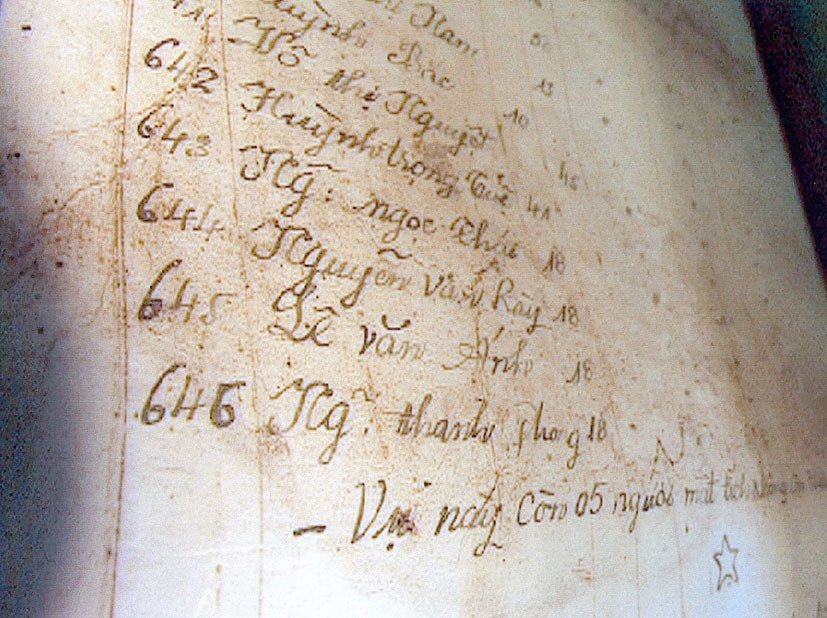 Nam 50
Huỳnh Bắc 13
642 Hồ thị Nguyệt 10
643 Huỳnh trọng Tuệ 41
644 Ng̃: ngọc Thái 18
Nguyễn văn Rầy 18
645 Lê văn Ánh 18
646 Ng̃: thanh phong 18
- Vụ này còn 05 người mất tích